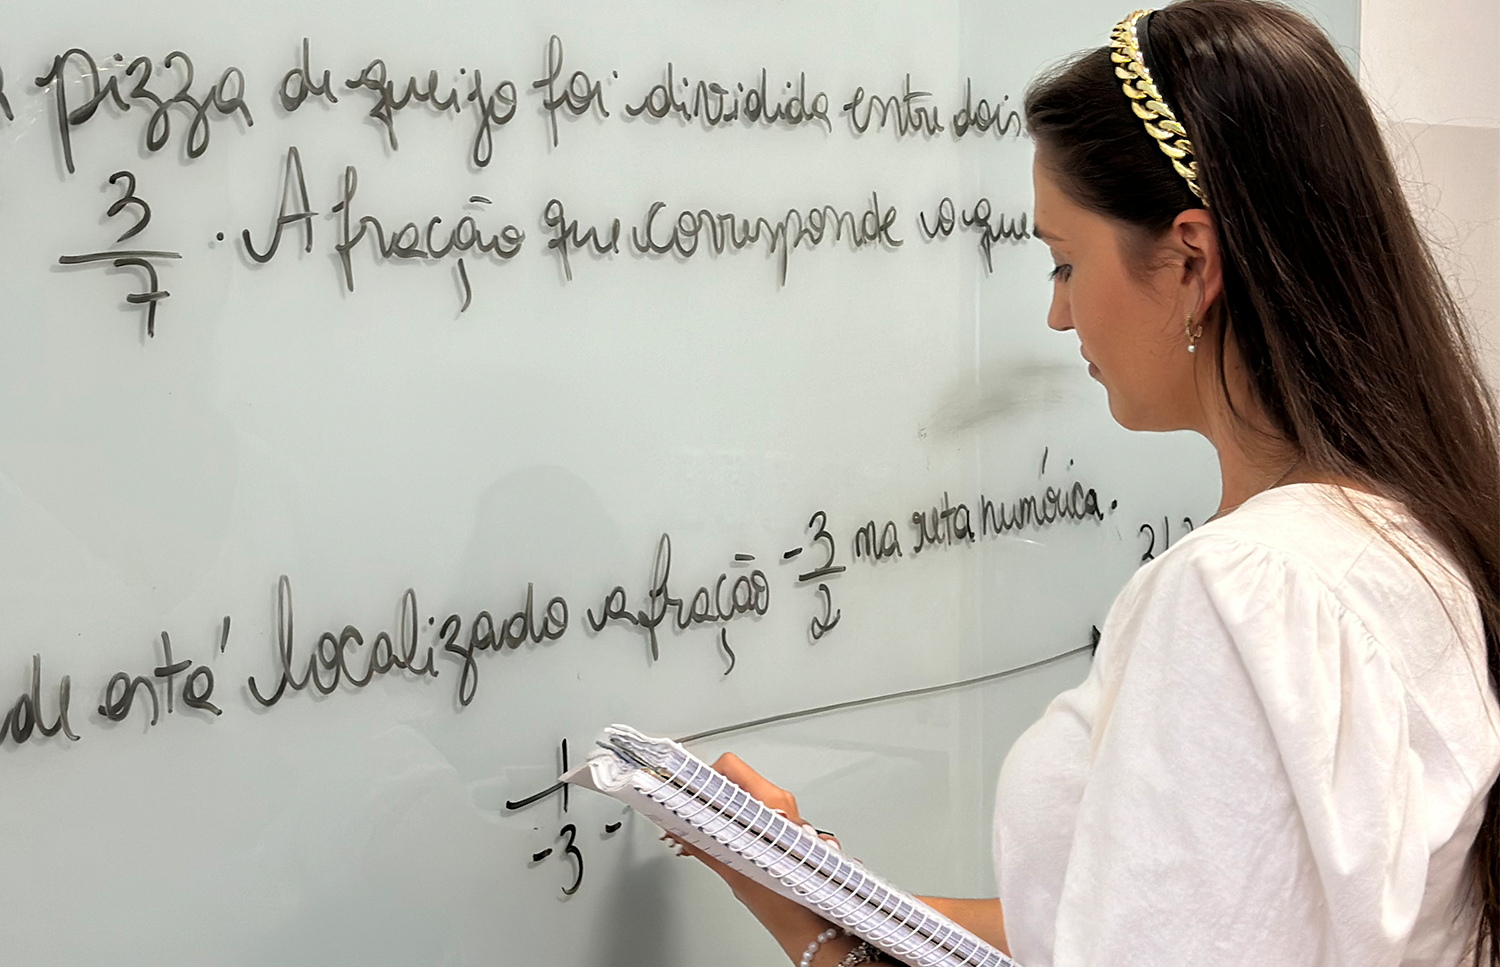 pizza de queijo foi dividida entre dois
3/7 . A fração que corresponde o que
de está localizado a fração -3/2 na reta numérica.
-3 -